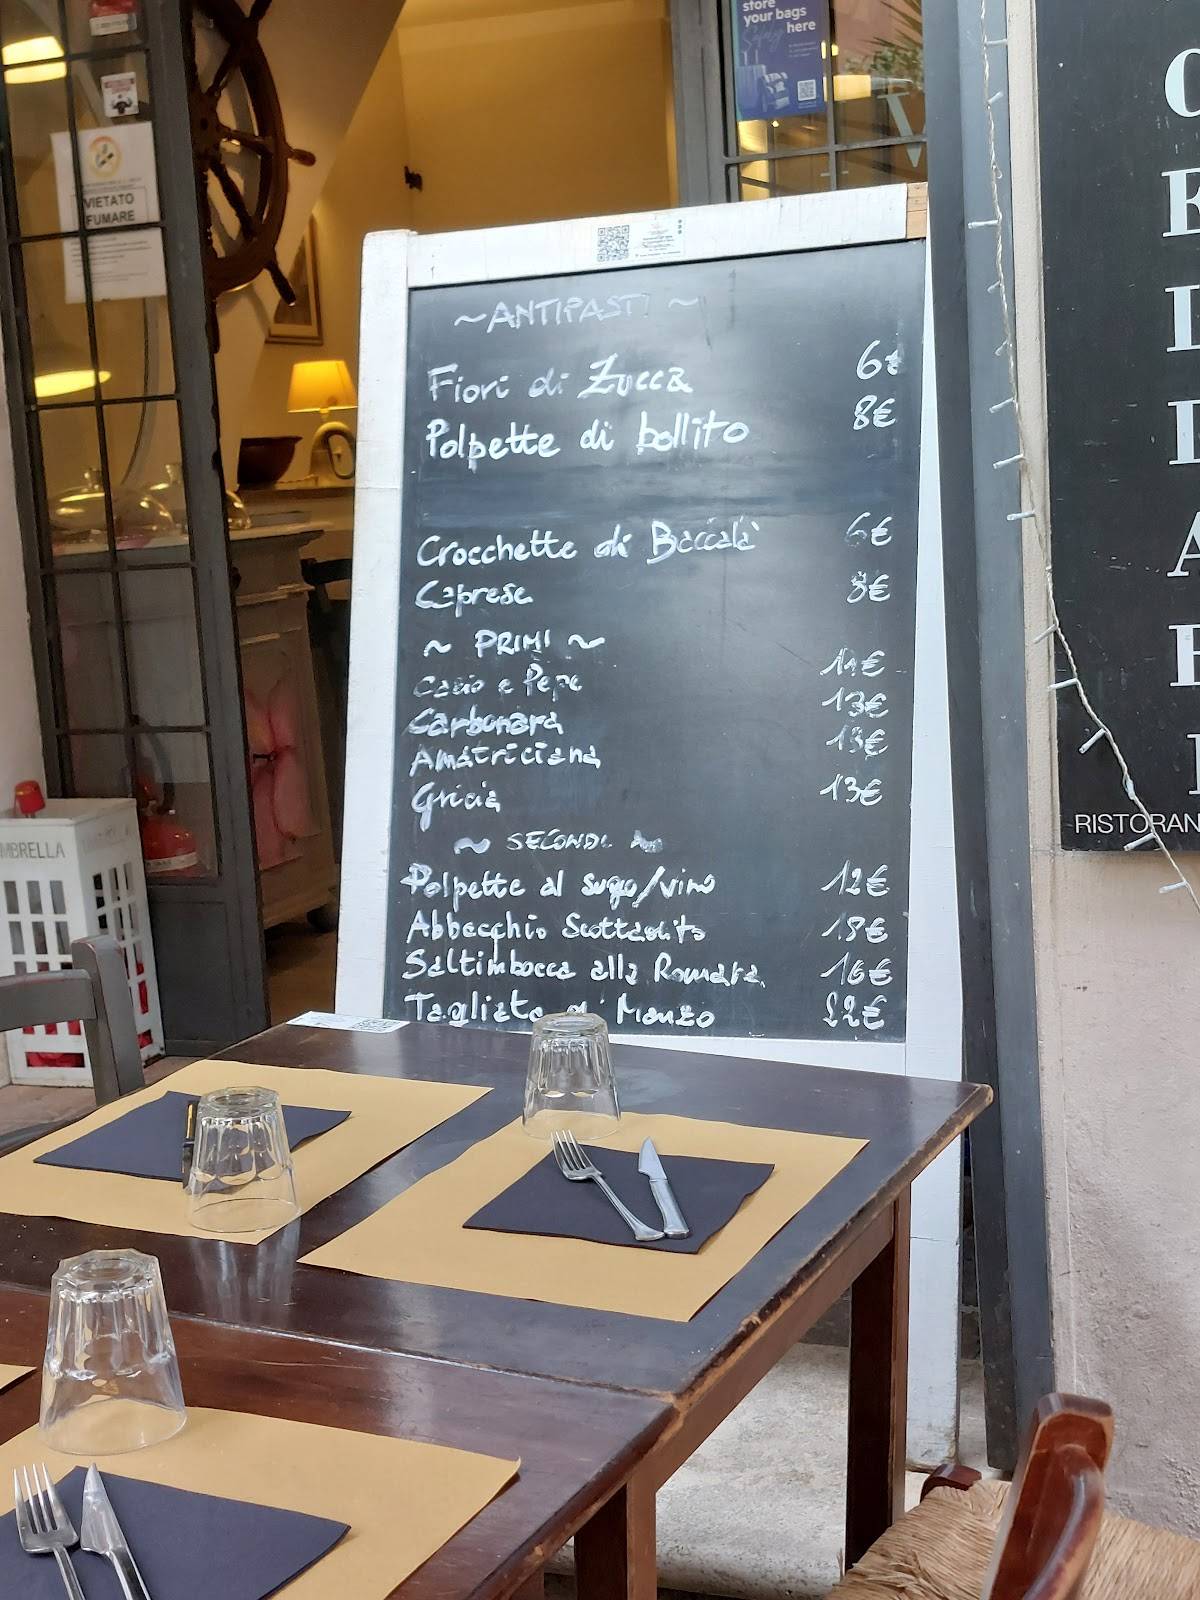 store
your bags
here
Safely
VIETATO
FUMARE
~ANTIPASTI~
Fiori di Zucca 6€
Polpette di bollito 8€
Crocchette di Baccalà 6€
Caprese 8€
~ PRIMI ~
Cacio e Pepe 11€
Carbonara 13€
Amatriciana 13€
Gricia 13€
~ SECONDI ~
Polpette al sugo/vino 12€
Abbacchio Scottadito 18€
Saltimbocca alla Romana 16€
Tagliata di Manzo 22€
MBRELLA
RISTORAN